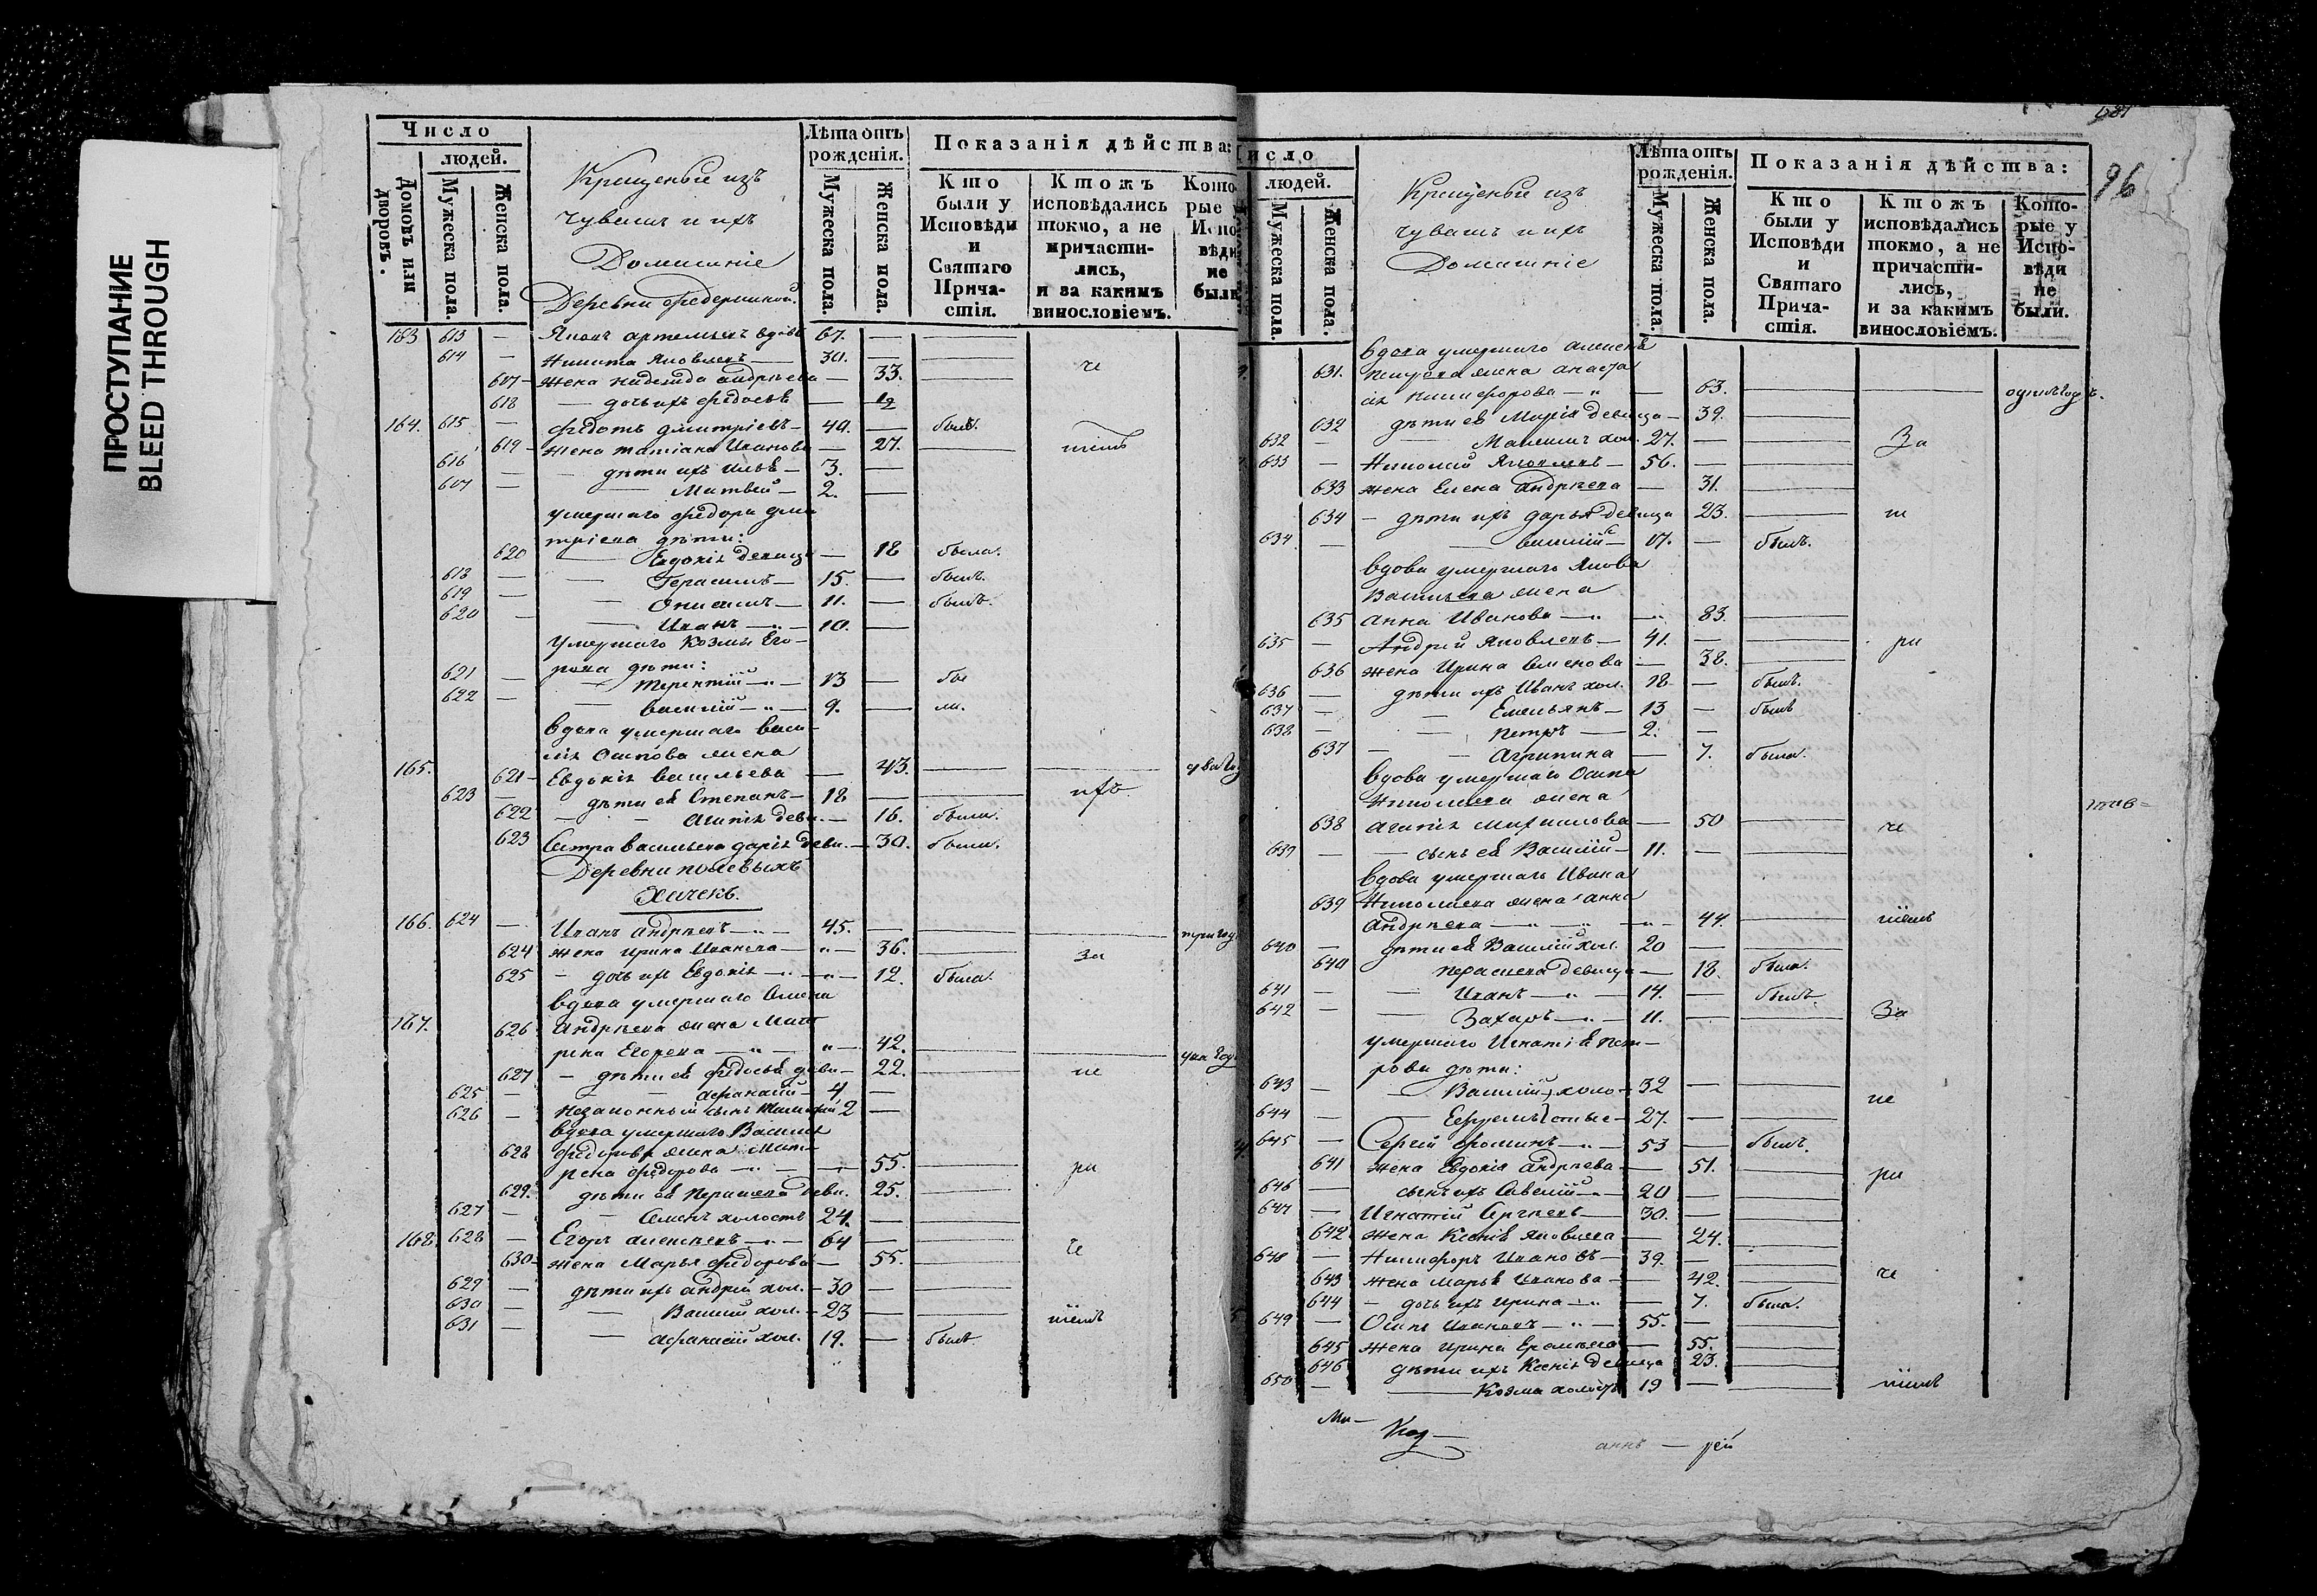 ПРОСТУПАНИЕ
BLEED THROUGH
Число
людей.
Домовъ или дворовъ.
Мужеска пола.
Женска пола.
Крещеныя изъ
чувашъ и ихъ
Домашніе
Деревни
Лѣта отъ рожденія.
Мужеска пола.
Женска пола.
Показанія дѣйства:
Кто были у Исповѣди и Святаго Прича-стія.
Ктожъ исповѣдались токмо, а не причасти-лись, и за какимъ винословіемъ.
Кото-рые у Испо-вѣди не были.
163 613 — Яковъ Артемьевъ вдовъ 67. —
614 — Никита Яковлевъ — 30. —
617 — жена Надежда Андрѣева — 33.
618 — дочь ихъ Федосья — 12
164. 615 — Федотъ Дмитріевъ — 40. — былъ.
619 — жена Татіана Иванова — 27.
616 — дѣти ихъ Илья — 3. —
617 — Матвей — 2. —
умершаго Федора Дми
тріева дѣти:
620 — Евдокія девица — 18 была.
618 — Герасимъ — 15. — былъ.
619 — Онисимъ — 11. — былъ.
620 — Иванъ — 10. —
умершаго Козмы Его-
рова дѣти:
621 — Терентій — 13 — бы
622 — Василій — 9. — ли.
вдова умершаго Васи-
лія Осипова жена
165. 621 — Евдокія Васильева — 43. два го
623 — дѣти ея Степанъ — 18 — ихъ
622 — Агапія деви. — 16. была.
623 Сестра Васильева Дарія деви. — 30. была.
Деревни полевыхъ
166. 624 — Иванъ Андрѣевъ — 45. — три год
624 жена Ирина Иванова — 36. за
625 — дочь ихъ Евдокія — 12. была.
вдова умершаго Семена
167. 626 Андрѣева жена Мат
рена Егорова — 42.
627 — дѣти ея Федосья деви — 22. не
625 — Афанасій — 4 —
626 — незаконный сынъ 2 —
вдова умершаго Василья
628 Федорова жена Мат-
рена Федорова — 55. ра
629. дѣти ея Парасковья деви. 25.
627 — Семенъ холостъ 24. —
168. 628 — Егоръ Алексѣевъ — 64 —
630 — жена Марья Федорова — 55. че
629 — дѣти ихъ Андрей хол. — 30 —
630 — Василій хол. — 23 —
631 — Афанасій хол. 19. — былъ
687
96
Число
людей.
Мужеска пола.
Женска пола.
Крещеныя изъ
чувашъ и ихъ
Домашніе
Лѣта отъ рожденія.
Мужеска пола.
Женска пола.
Показанія дѣйства:
Кто были у Исповѣди и Святаго Прича-стія.
Ктожъ исповѣдались токмо, а не причасти-лись, и за какимъ винословіемъ.
Кото-рые у Испо-вѣди не были.
вдова умершаго Алексѣя
631. Петрова жена Анаста
сія Никифорова — 63. одинъ годъ.
632 дѣти ея Марія девица — 39.
632 — Максимъ хол. 27. — За
633 — Николай Яковлевъ — 56. —
633 жена Елена Андрѣева — 31.
634 — дѣти ихъ Дарья девица 23.
634 — Василій — 17. — былъ.
вдова умершаго Якова
Васильева жена
635 Анна Иванова — 83.
635 — Андрей Яковлевъ — 41. — ра
636 жена Ирина Семенова — 38.
636 — дѣти ихъ Иванъ хол. 18 — былъ.
637 — Емельянъ — 13 — былъ
638 — Петръ — 2. —
637 — Агрипина — 7. была.
вдова умершаго Осипа
Николаева жена
638 Агапія Михайлова — 50 че
639 — сынъ ея Василій — 11. —
вдова умершаго Ивана
639 Николаева жена Анна
Андрѣева — 44.
640 — дѣти ея Василій хол. 20 —
640 Парасковья девица — 18. была.
641 — Иванъ — 14. — былъ.
642 — Захаръ — 11. — За
умершаго Игнатія Пет-
рова дѣти:
643 — Василій холо- 32 — не
644 — Ефремъ стые — 27. —
645 — Сергей Фоминъ — 53 — былъ.
641 жена Евдокія Андрѣева — 51. ра
646 — сынъ ихъ Савелій — 20 —
647 — Игнатій Сергѣевъ — 30. —
642 жена Ксенія Яковлева — 24.
648 — Никифоръ Ивановъ — 39. —
643 жена Марья Иванова — 42. че
644 — дочь ихъ Ирина — 7. была.
649 — Осипъ Ивановъ — 55. —
645 жена Ирина Ермолаева — 55.
646 дѣти ихъ Ксенія девица 23.
650 — Козма холостъ 19 —